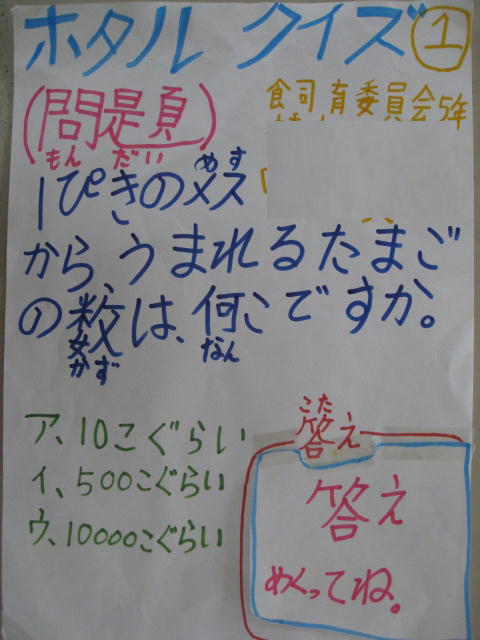 ホタル クイズ①
飼育委員会5年
(問題)
もんだい
めす
1ぴきのメス
から、うまれるたまご
の数は、何こですか。
かず なん
ア、10こぐらい
イ、500こぐらい
ウ、10000こぐらい
こた
答え
答え
めくってね。